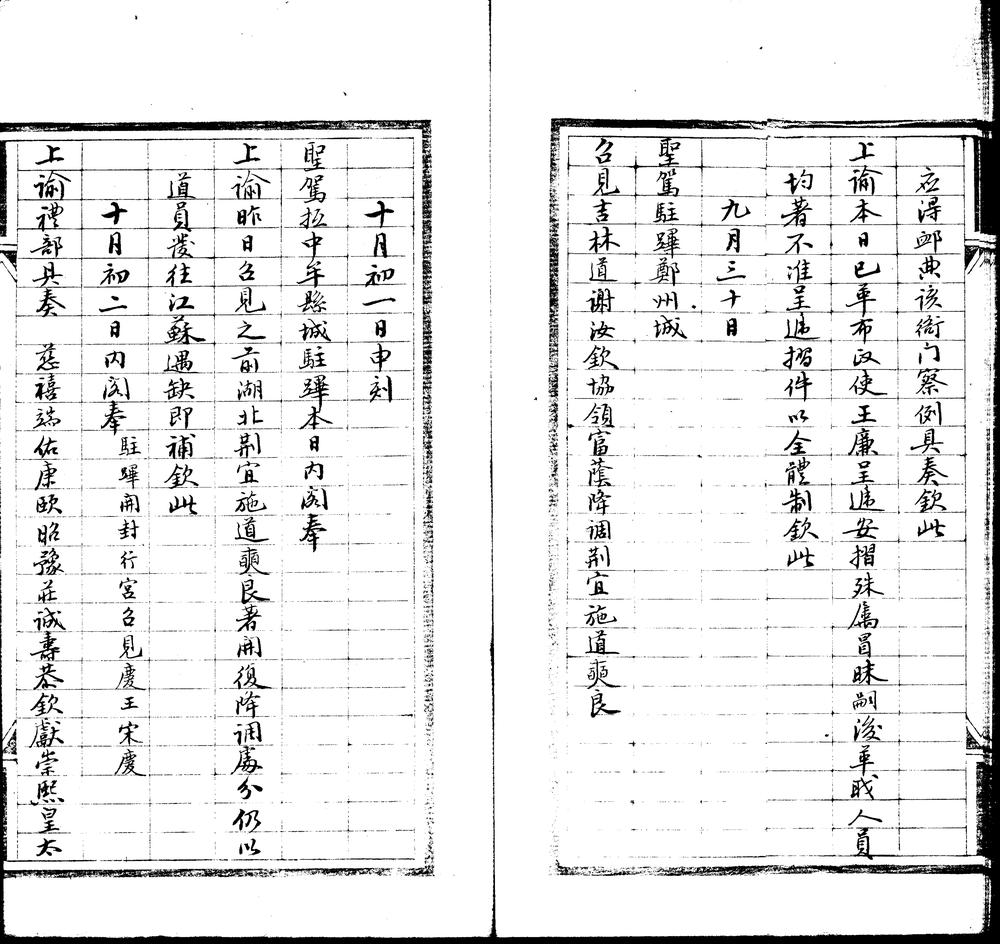 应得卹典该衙门察例具奏钦此
上谕本日已革布政使王廉呈递安摺殊属冒昧嗣後革职人员
均著不准呈递摺件以全體制钦此
九月三十日
聖駕駐蹕鄭州城
召見吉林道谢汝钦協領富蔭降调荆宜施道奭良
十月初一日申刻
聖駕抵中牟縣城駐蹕本日内阁奉
上谕昨日召見之前湖北荆宜施道奭良著開復降调處分仍以
道員發往江蘇遇缺即補钦此
十月初二日内阁奉駐蹕開封行宮召見慶王宋慶
上谕禮部具奏 慈禧端佑康頤昭豫莊诚壽恭钦獻崇熙皇太